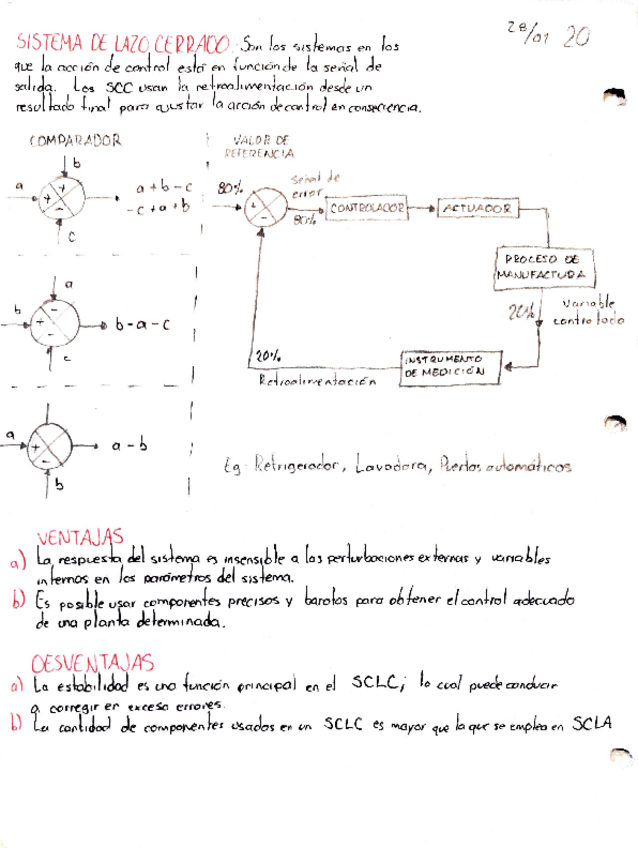 28/01 20
SISTEMA DE LAZO CERRADO: Son los sistemas en los
que la acción de control está en función de la señal de
salida. Los SCC usan la retroalimentación desde un
resultado final para ajustar la acción de control en consecuencia.
COMPARADOR
b
a
+
+
-
a + b - c
- c + a + b
c
a
b
+
-
-
b - a - c
c
a
+
-
a - b
b
VALOR DE
REFERENCIA
80%
+
-
Señal de
error
80%
CONTROLADOR
ACTUADOR
PROCESO DE
MANUFACTURA
20%
Variable
controlada
INSTRUMENTO
DE MEDICIÓN
20%
Retroalimentación
Eg: Refrigerador, Lavadora, Puertas automáticas
VENTAJAS
a) La respuesta del sistema es insensible a las perturbaciones externas y variables
internas en los parámetros del sistema.
b) Es posible usar componentes precisos y baratos para obtener el control adecuado
de una planta determinada.
DESVENTAJAS
a) La estabilidad es una función principal en el SCLC; lo cual puede conducir
a corregir en exceso errores.
b) La cantidad de componentes usados en un SCLC es mayor que la que se emplea en SCLA